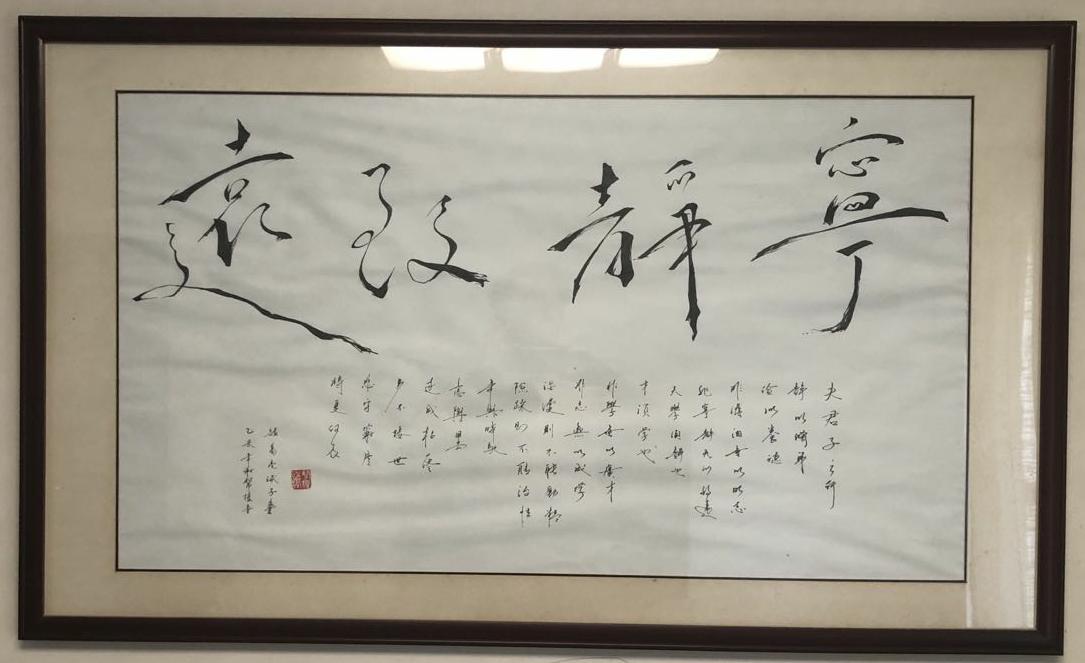 寧靜致遠
夫君子之行
靜以脩身
儉以養德
非澹泊無以明志
非寧靜無以致遠
夫學須靜也
才須學也
非學無以廣才
非志無以成學
淫漫則不能勵精
險躁則不能治性
年與時馳
意與
遂成枯落
多不接世
悲守窮廬
將復何及
諸葛亮誡子書
乙亥年